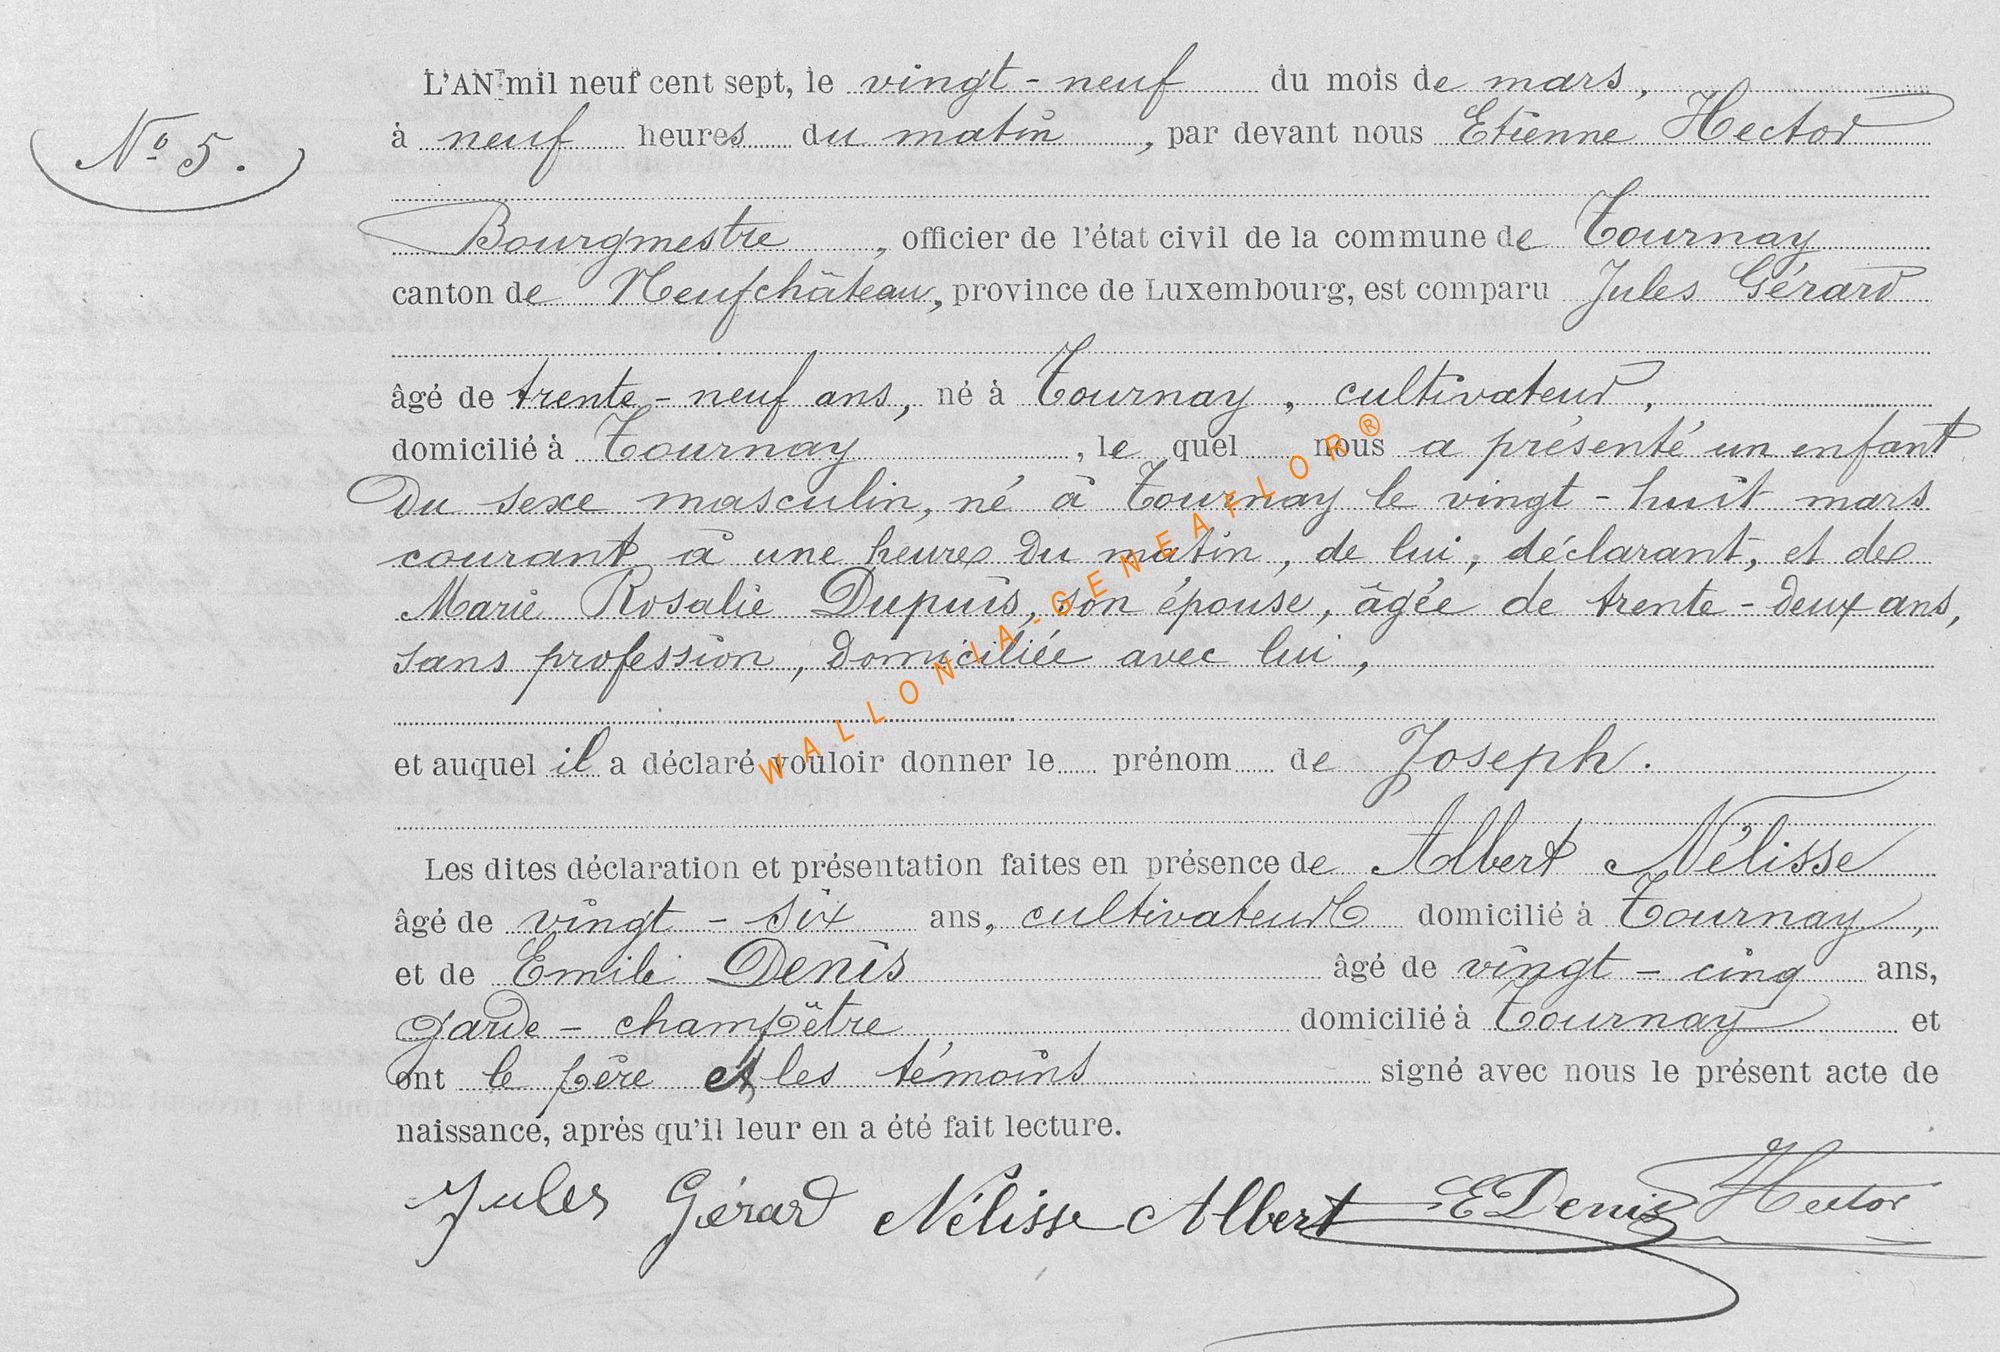 L'AN mil neuf cent sept, le vingt-neuf du mois de mars,
No 5.
à neuf heures du matin, par devant nous Etienne Hector
Bourgmestre, officier de l'état civil de la commune de Tournay
canton de Neufchâteau, province de Luxembourg, est comparu Jules Gérard
âgé de trente-neuf ans, né à Tournay, cultivateur,
domicilié à Tournay, le quel nous a présenté un enfant
du sexe masculin, né à Tournay le vingt-huit mars
courant à une heure du matin, de lui, déclarant, et de
Marie Rosalie Dupuis, son épouse, âgée de trente-deux ans,
sans profession, domiciliée avec lui,
et auquel il a déclaré vouloir donner le prénom de Joseph.
Les dites déclaration et présentation faites en présence de Albert Nélisse
âgé de vingt-six ans, cultivateur domicilié à Tournay,
et de Emile Denis âgé de vingt-cinq ans,
garde-champêtre domicilié à Tournay et
ont le père et les témoins signé avec nous le présent acte de
naissance, après qu'il leur en a été fait lecture.
Jules Gérard Nélisse Albert E Denis Hector
WALLONIA-GENEAFLOR®